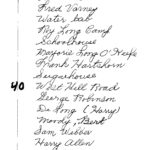 Fred Varney
Water bab
Ney Long Camp
Schoolhouse
Marjorie Long O'Keefe
Frank Hartshorn
Sugarhouse
40 West Hill Road
George Robinson
De Long (Harry)
Moody, Bert
Sam Webber
Harry Allen